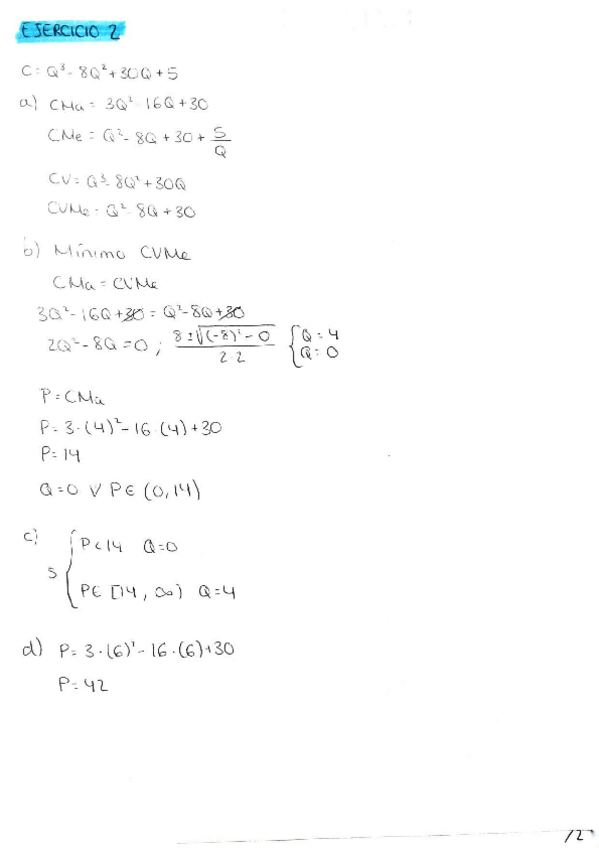 EJERCICIO 2
C = Q³ - 8Q² + 30Q + 5
a) CMa = 3Q² - 16Q + 30
CMe = Q² - 8Q + 30 + 5/Q
CV = Q³ - 8Q² + 30Q
CVMe = Q² - 8Q + 30
b) Mínimo CVMe
CMa = CVMe
3Q² - 16Q + 30 = Q² - 8Q + 30
2Q² - 8Q = 0 ; 8 ± √((-8)² - 0) / 2·2 { Q = 4 Q = 0
P = CMa
P = 3·(4)² - 16·(4) + 30
P = 14
Q = 0 ∀ P ∈ (0, 14)
c) S { P < 14 Q = 0
P ∈ [14, ∞) Q = 4
d) P = 3·(6)² - 16·(6) + 30
P = 42
/2